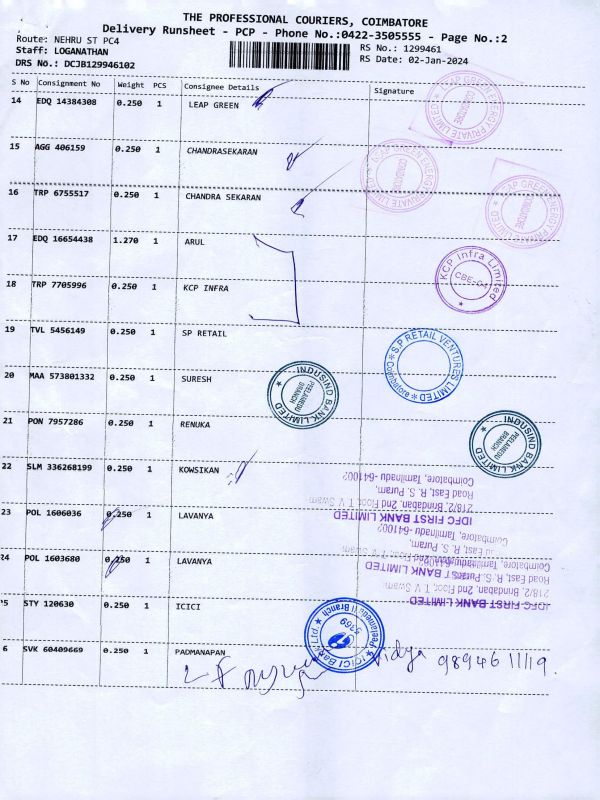 THE PROFESSIONAL COURIERS, COIMBATORE
Delivery Runsheet - PCP - Phone No.:0422-3505555 - Page No.:2
Route: NEHRU ST PC4
RS No.: 1299461
Staff: LOGANATHAN
RS Date: 02-Jan-2024
DRS No.: DCJB129946102
S No Consignment No Weight PCS Consignee Details Signature
14 EDQ 14384308 0.250 1 LEAP GREEN
LEAP GREEN ENERGY PRIVATE LIMITED COIMBATORE
15 AGG 406159 0.250 1 CHANDRASEKARAN
LEAP GREEN ENERGY PRIVATE LIMITED COIMBATORE
16 TRP 6755517 0.250 1 CHANDRA SEKARAN
LEAP GREEN ENERGY PRIVATE LIMITED COIMBATORE
17 EDQ 16654438 1.270 1 ARUL
18 TRP 7705996 0.250 1 KCP INFRA
KCP Infra Limited CBE-04
19 TVL 5456149 0.250 1 SP RETAIL
S.P RETAIL VENTURES LIMITED Coimbatore
20 MAA 573801332 0.250 1 SURESH
INDUSIND BANK LIMITED PEELAMEDU BRANCH
21 PON 7957286 0.250 1 RENUKA
INDUSIND BANK LIMITED PEELAMEDU BRANCH
22 SLM 336268199 0.250 1 KOWSIKAN
23 POL 1606036 0.250 1 LAVANYA
IDFC FIRST BANK LIMITED
218/2, Brindaban, 2nd Floor, T V Swam
Road East, R. S. Puram,
Coimbatore, Tamilnadu -641002
24 POL 1603680 0.250 1 LAVANYA
IDFC FIRST BANK LIMITED
218/2, Brindaban, 2nd Floor, T V Swam
Road East, R. S. Puram,
Coimbatore, Tamilnadu
5 STY 120630 0.250 1 ICICI
ICICI Bank Ltd. Peelamedu II Branch 5369
6 SVK 60409669 0.250 1 PADMANAPAN
Vidya 9894611119